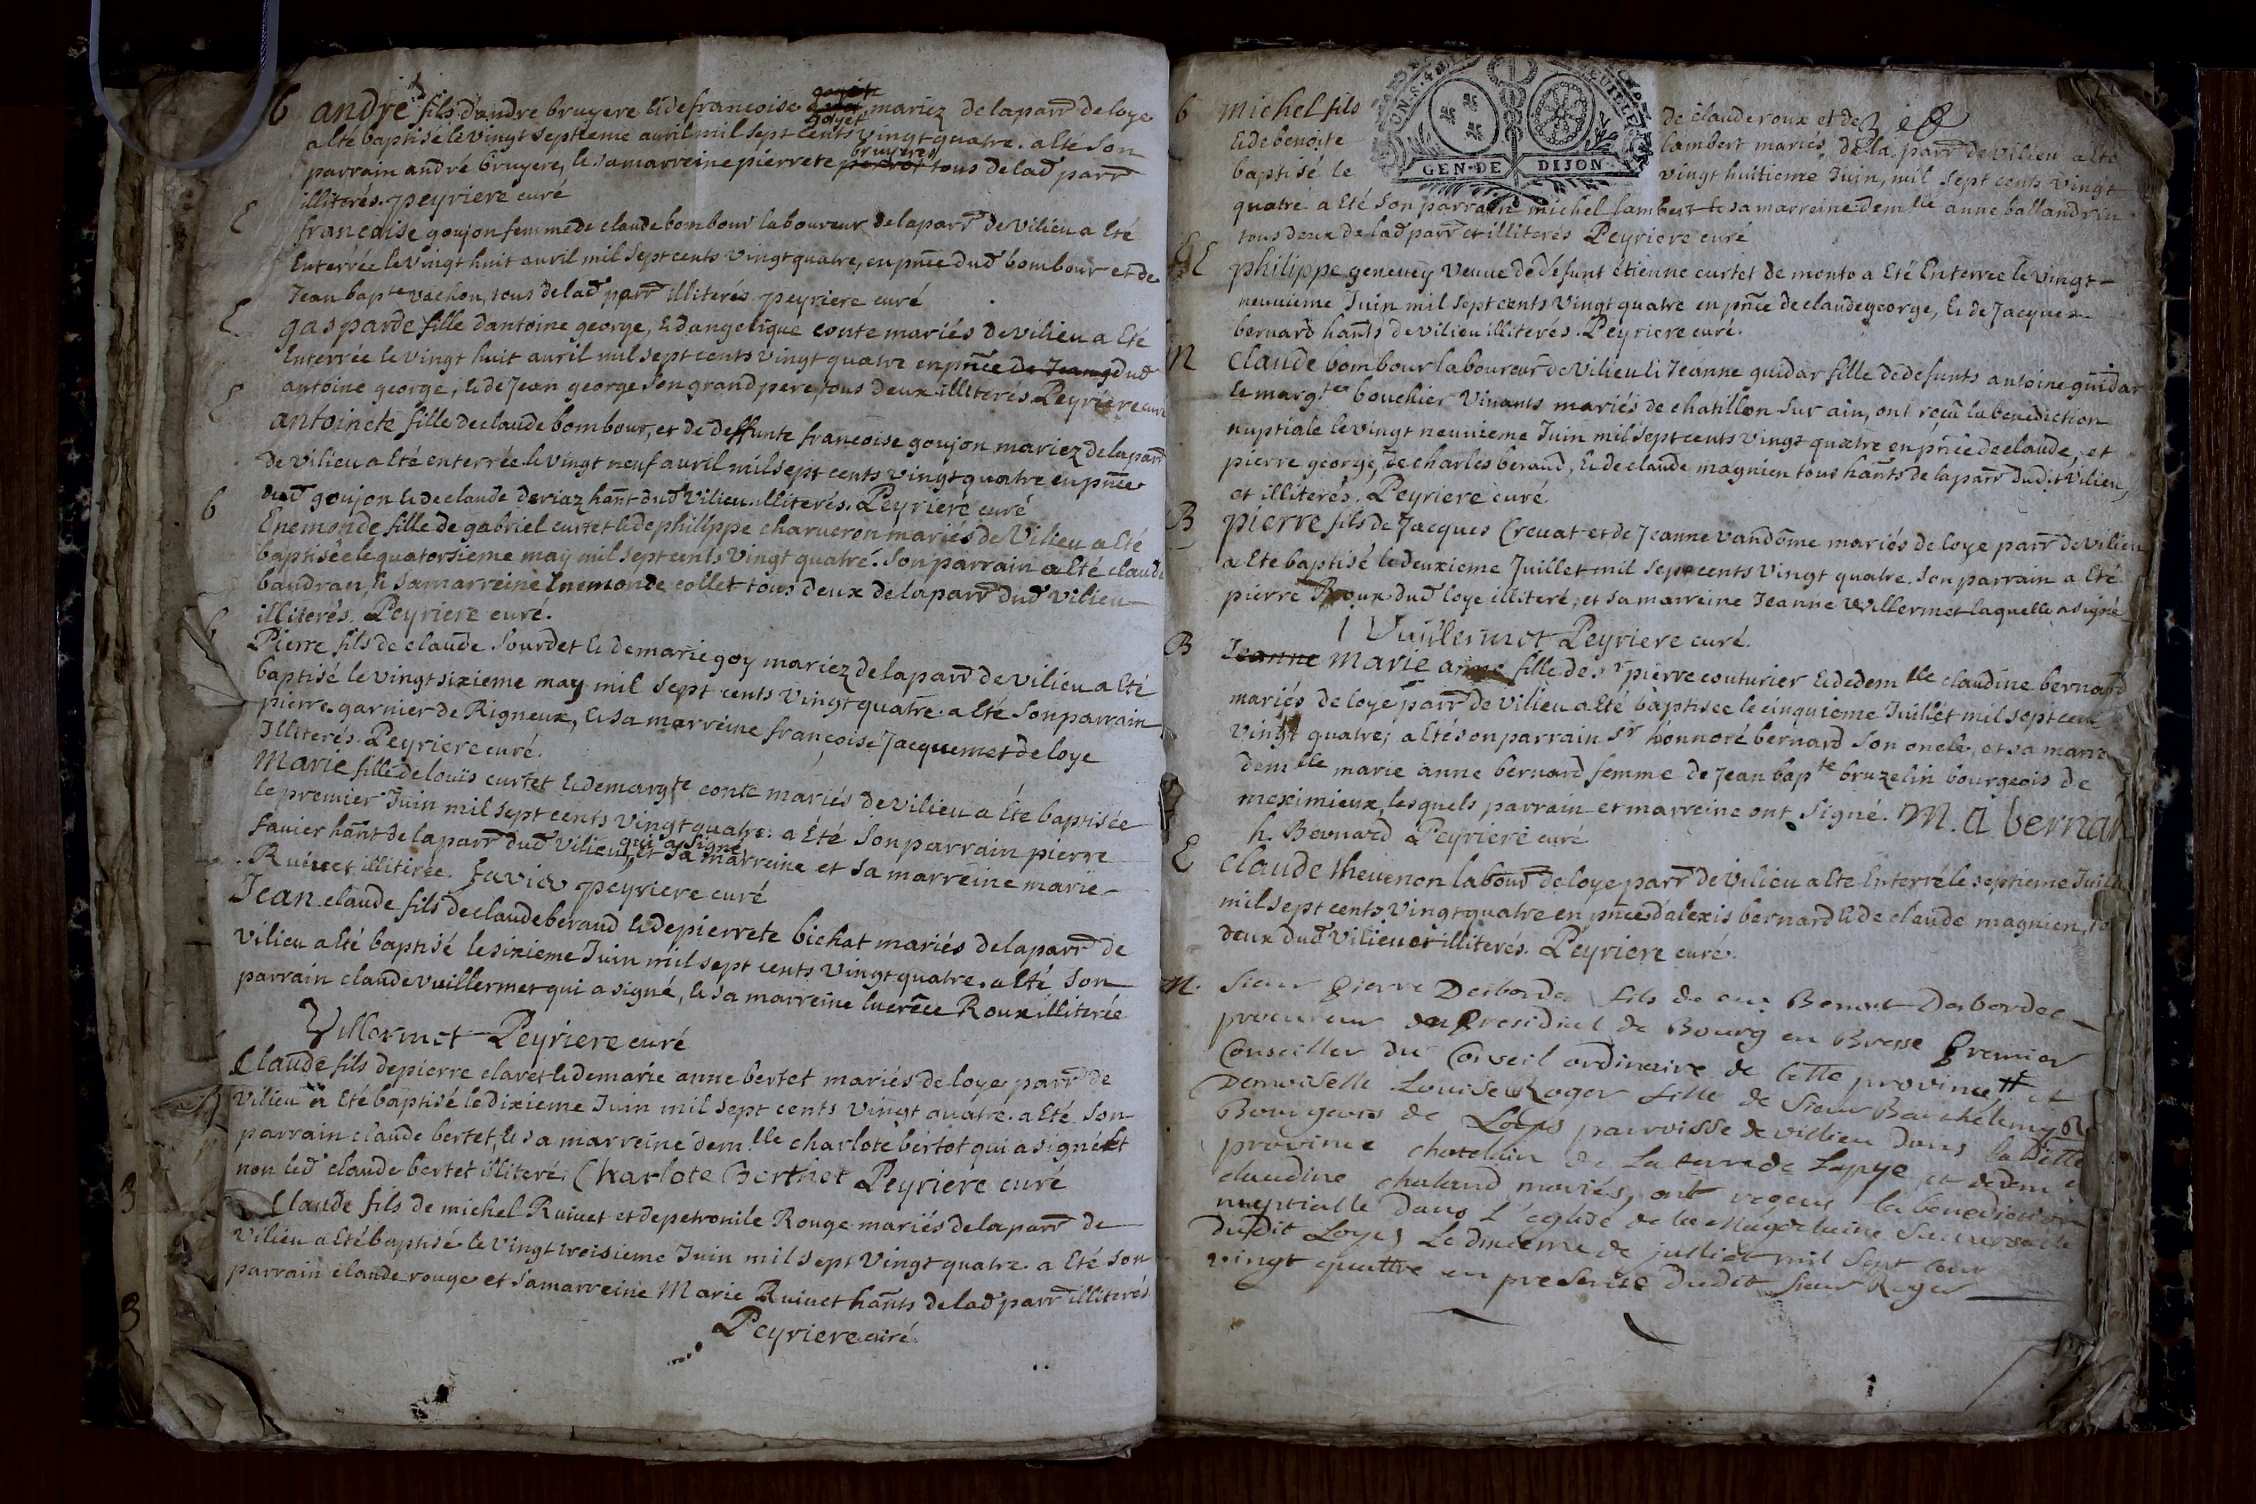 b andré fils d'andre bruyere & de francoise goyet mariez de la parr de loye
a eté baptisé le vingt septieme auril mil sept cents vingt quatre. a eté son
parrain andré bruyere, & sa marreine pierrete bruyere tous de lad parr
illiterés. peyriere curé
E francoise goujon femme de claude bombour laboureur de la parr de vilieu a eté
Enterrée le vingt huit auril mil sept cents vingt quatre, en pnce dud bombour et de
Jean bapte vachon, tous de lad parr illiterés. peyriere curé
E gasparde fille d'antoine george, & d'angelique conte mariés de vilieu a eté
Enterrée le vingt huit auril mil sept cents vingt quatre en pnce de Jean g dud
antoine george, & de Jean george son grand pere tous deux illiterés Peyriere curé
E antoinete fille de claude bombour, et de deffunte francoise goujon mariez de la parr
de vilieu a eté enterrée le vingt neuf auril mil sept cents vingt quatre en pnce
dud goujon & de claude deriaz hant dud vilieu illiterés. Peyriere curé
b Enemonde fille de gabriel curtet & de philippe charueron mariés de vilieu a eté
baptisée le quatorsieme may mil sept cents vingt quatre. son parrain a eté claude
baudran, & sa marreine Enemonde collet tous deux de la parr dud vilieu
illiterés. Peyriere curé.
b Pierre fils de claude Sourdet & de marie goy mariez de la parr de vilieu a eté
baptisé le vingt sixieme may mil sept cents vingt quatre. a eté son parrain
pierre garnier de Rigneux, & sa marreine françoise Jacquemet de loye
Illiterés. Peyriere curé.
Marie fille de louis curtet & de margte conte mariés de vilieu a éte baptisée
le premier Juin mil sept cents vingt quatre. a été son parrain pierre
fauier hant de la parr dud vilieu, qui a signé et sa marreine et sa marreine marie
Ruiuet illitirée. favier peyriere curé
Jean claude fils de claude beraud & de pierrete bichat mariés de la parr de
vilieu a eté baptisé le sixieme Juin mil sept cents vingt quatre. a eté son
parrain claude vuillermet qui a signé, & sa marreine lucrece Roux illiterée
Villermet Peyriere curé
Claude fils de pierre claret & de marie anne bertet mariés de loye parr de
vilieu a eté baptisé le dixieme Juin mil sept cents vingt quatre. a eté son
parrain claude bertet, & sa marreine demlle charlote bertot qui a signé et
non led claude bertet illiteré. Charlote Berthet Peyriere curé
Claude fils de michel Ruiuet et de petronile Rouge mariés de la parr de
vilieu a eté baptisé le vingt troisieme Juin mil sept vingt quatre. a eté son
parrain claude rouge et sa marreine Marie Ruiuet hants de lad parr illiterés
Peyriere curé.
GEN · DE DIJON
b michel fils de claude roux et de
& de benoite lambert mariés de la parr de vilieu a eté
baptisé le vingt huitieme Juin, mil sept cents vingt
quatre a eté son parrain michel lambert & sa marreine demlle anne ballandrin
tous deux de lad parr et illiterés Peyriere curé
E philippe geneuey veuue de defunt étienne curtet de monto a eté Enterree le vingt
neuuieme Juin mil sept cents vingt quatre en pnce de claude george, & de Jacques
bernard hants de vilieu illiterés. Peyriere curé.
m Claude bombour laboureur de vilieu & Jeanne guidar fille de defunts antoine guidar
& margte bouchier vivants mariés de chatillon sur ain, ont reçu la benediction
nuptiale le vingt neuuieme Juin mil sept cents vingt quatre en pnce de claude, et
pierre george, de charles beraud, & de claude magnien tous hants de la parr dudit vilieu,
et illiterés. Peyriere curé.
B pierre fils de Jacques Creuat et de Jeanne vandôme mariés de loye parr de vilieu
a eté baptisé le deuxieme Juillet mil sept cents vingt quatre. son parrain a eté
pierre Roux dud loye illiteré, et sa marreine Jeanne Vuillermet laquelle a signé
J Vuillermet Peyriere curé.
B Jeanne Marie anne fille de sr pierre couturier & de demlle claudine bernard
mariés de loye parr de vilieu a eté baptisee le cinquieme Juillet mil sept cent
vingt quatre; a eté son parrain sr honnoré bernard son oncle, et sa marre
demlle marie anne bernard femme de Jean bapte bruzelin bourgeois de
meximieux, lesquels parrain et marreine ont signé. M. a bernar
h. Bernard Peyriere curé
E Claude thevenon labour de loye parr de vilieu a eté Enterré le septieme Juill
mil sept cents vingt quatre en pnce d'alexis bernard & de claude magnien, to
deux dud vilieu et illiterés. Peyriere curé.
M. Sieur Pierre Desbordes fils de Benoit Desbordes
procureur au Presidial de Bourg en Bresse Premier
Conseiller du Conseil ordinaire de Cette province et
Demoiselle Louise Roger fille de Sieur Barthelemy Ro
Bourgeois de Loyes parroisse de villieu dans laditte
province chatelain de la terre de Loyye et de dem
claudine chaland mariés, ont reçeu la benediction
nuptialle dans l'eglise de la Magdelaine Succursale
dudit Loyes Le dixieme de julliet mil Sept Cent
vingt quattre en presence dudit Sieur Roger